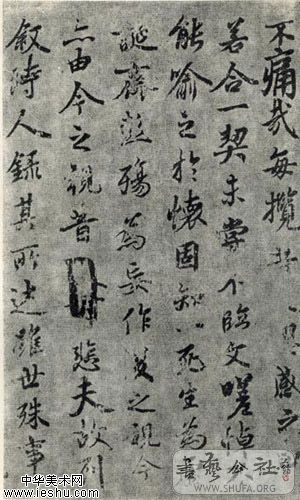 不痛哉每攬昔感之
若合一契未嘗不臨文嗟悼
能喻之於懷固知一死生為
誕齊彭殤為妄作後之視今
亦由今之視昔悲夫故列
叙時人錄其所述雖世殊事
書藝公社
WWW.SHUFA.ORG
中华美术网
www.ieshu.com